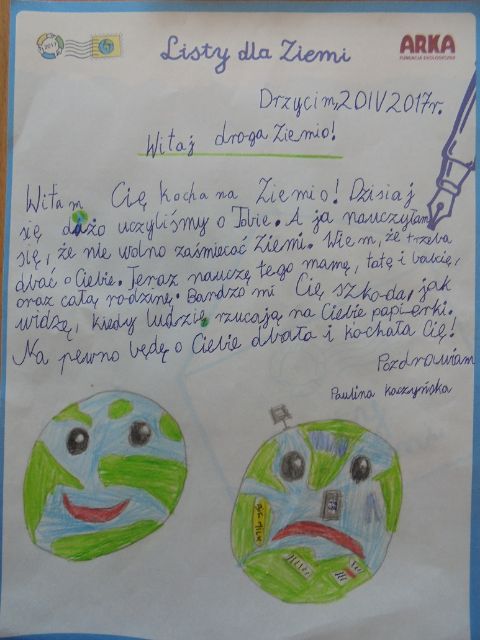 2017
Listy dla Ziemi
ARKA
FUNDACJA EKOLOGICZNA
Drzycim, 20IV2017r.
Witaj droga Ziemio!
Witam Cię kochana Ziemio! Dzisiaj
się dużo uczyliśmy o Tobie. A ja nauczyłam
się, że nie wolno zaśmiecać Ziemi. Wiem, że trzeba
dbać o Ciebie. Teraz nauczę tego mamę, tatę i babcię,
oraz całą rodzinę. Bardzo mi Cię szkoda, jak
widzę, kiedy ludzie rzucają na Ciebie papierki.
Na pewno będę o Ciebie dbała i kochała Cię!
Pozdrawiam
Paulina Kaczyńska